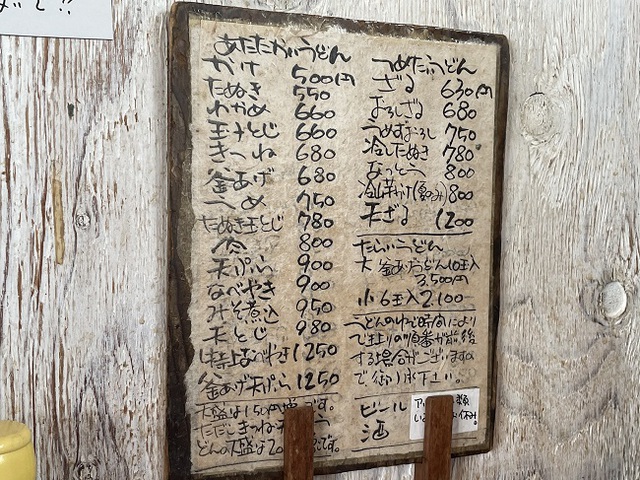 あたたかいうどん
かけ 500円
たぬき 550
わかめ 660
玉子とじ 660
きつね 680
釜あげ 680
うめ 750
たぬき玉とじ 780
肉 800
天ぷら 900
なべやき 900
みそ煮込 950
天とじ 980
特上なべやき 1250
釜あげ天ぷら 1250
大盛は150円増です。
ただしきつね
どんの大盛は
つめたいうどん
ざる 630円
おろしざる 680
つめたおろし 750
冷したぬき 780
なっとう 800
冷山芋かけ(夏のみ) 800
天ざる 1200
たらいうどん
大 釜あげうどん10玉入
3,500円
小6玉入 2,100
うどんのゆで時間により
で上りの順番が前後
する場合がございますの
で御了承下さい。
ビール
酒